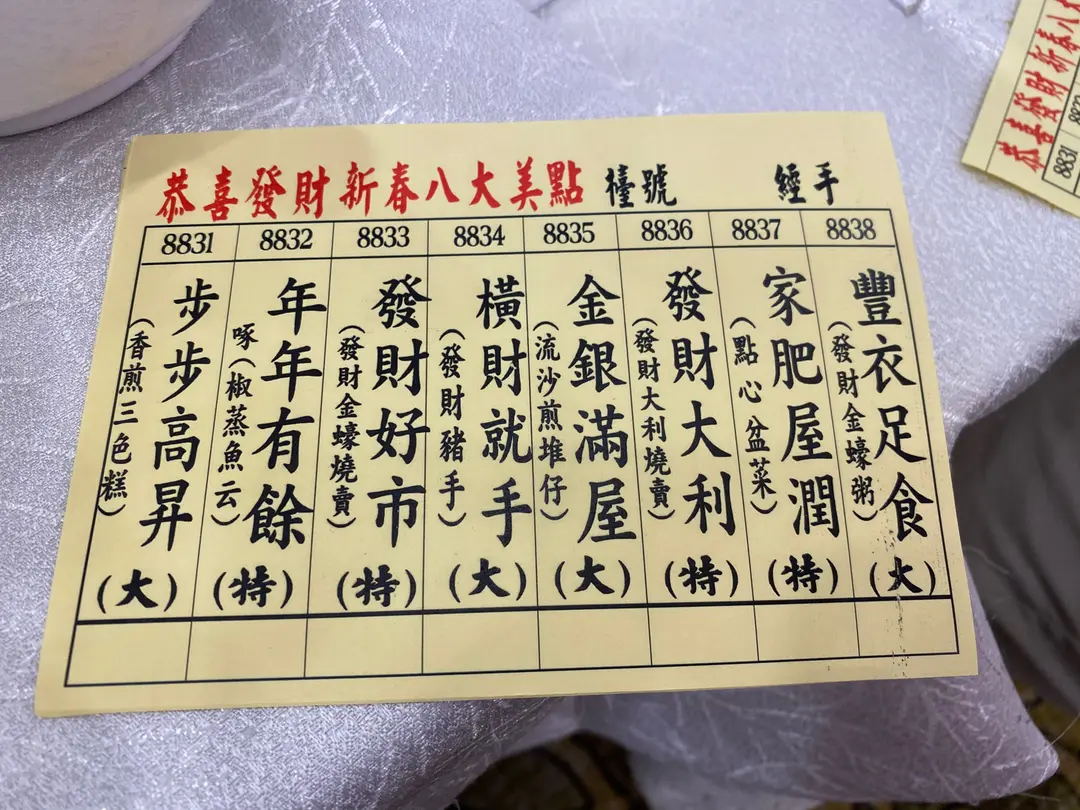 恭喜發財新春八大美點 檯號 經手
8831 8832 8833 8834 8835 8836 8837 8838
步步高昇
(香煎三色糕)
(大)
年年有餘
啄(椒蒸魚云)
(特)
發財好市
(發財金蠔燒賣)
(特)
橫財就手
(發財豬手)
(大)
金銀滿屋
(流沙煎堆仔)
(大)
發財大利
(發財大利燒賣)
(特)
家肥屋潤
(點心盆菜)
(特)
豐衣足食
(發財金蠔粥)
(大)
恭喜發財新春八
8831